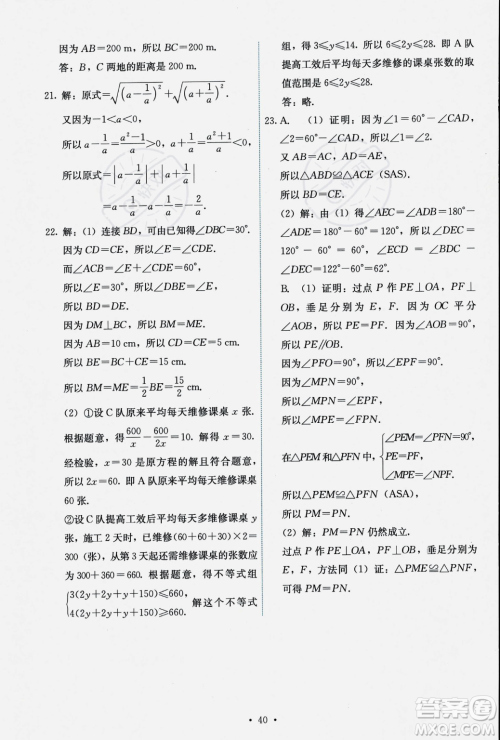 因为 AB=200 m，所以 BC=200 m.
答：B，C 两地的距离是 200 m.
21. 解：原式=√(a-1/a)²+√(a-1/a)².
又因为-1<a<0，
所以 a-1/a=(a²-1)/a>0，
所以原式=|a-1/a|+|a-1/a|
=a-1/a+a-1/a
22. 解：（1）连接 BD，可由已知得∠DBC=30°.
因为 CD=CE，所以∠E=∠CDE.
而∠ACB=60°，
所以∠E=30°，所以∠DBC=∠E，
所以 BD=DE.
因为 DM⊥BC，所以 BM=ME.
因为 AB=10 cm，所以 CD=CE=5 cm，
所以 BM=ME=1/2 BE=15/2 cm.
（2）①设 C 队原来平均每天维修课桌 x 张.
根据题意，得 600/x-600/2x=10.
经检验，x=30 是原方程的解且符合题意，
所以 2x=60. 即 A 队原来平均每天维修课桌
60 张.
②设 C 队提高工效后平均每天多维修课桌 y
张，施工 2 天时，已维修（60+60+30）×2=
300（张），从第 3 天起还需维修课桌的张数应
为 300+360=660（张）. 根据题意，得不等式组
{3(2y+y+y+150)≤660,
4(2y+y+y+150)≥660, 解这个不等式
组，得 3≤y≤14. 所以 6≤2y≤28. 即 A 队
提高工效后平均每天多维修的课桌张数的取
值范围是 6≤2y≤28.
答：略.
23. A. （1）证明：因为∠1=60°-∠CAD，
∠2=60°-∠CAD，所以∠1=∠2.
又因为 AB=AC，AD=AE，
所以△ABD≌△ACE（SAS）.
所以 BD=CE.
（2）解：由（1）得∠AEC=∠ADB=
180°-∠ADE=180°-60°=120°，
所以∠BEC=∠AEC-∠AED=
120°-60°=62°.
B. （1）证明：过点 P 作 PE⊥OA，PF⊥
OB，垂足分别为 E，F. 因为 OC 平分
∠AOB，所以 PE=PF. 因为∠AOB=90°，
所以 PE∥OB.
因为∠PFO=90°，所以∠EPF=90°.
因为∠MPN=90°，
所以∠MPE=∠NPF.
{∠PEM=∠PFN=90°，
在△PEM 和△PFN 中，PE=PF，
∠MPE=∠NPF，
所以△PEM≌△PFN（ASA）.
所以 PM=PN.
（2）解：PM=PN 仍然成立.
过点 P 作 PE⊥OA，PF⊥OB，垂足分别为
E，F，方法同（1）证：△PEM≌△PFN，
所以 PM=PN.
· 40 ·